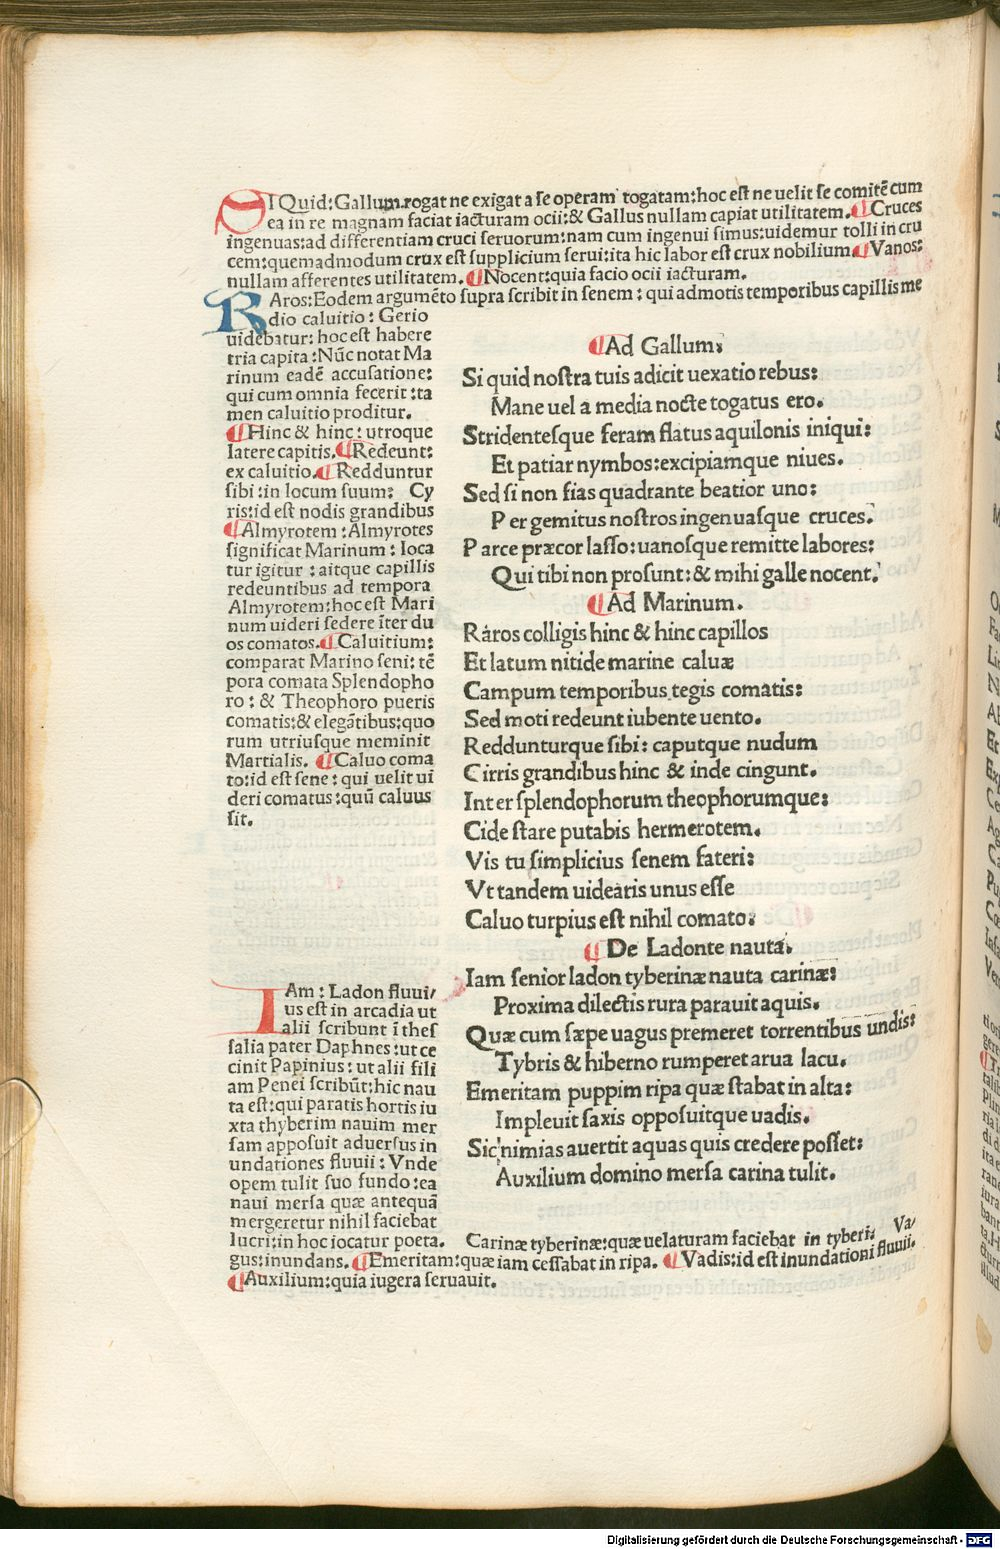 SI Quid: Gallum rogat ne exigat a se operam togatam: hoc est ne uelit se comitẽ cum
ea in re magnam faciat iacturam ocii: & Gallus nullam capiat utilitatem. ¶ Cruces
ingenuas: ad differentiam cruci seruorum: nam cum ingenui simus: uidemur tolli in cru
cem: quemadmodum crux est supplicium serui: ita hic labor est crux nobilium. ¶ Vanos:
nullam afferentes utilitatem. ¶ Nocent: quia facio ocii iacturam.
RAros: Eodem argumẽto supra scribit in senem: qui admotis temporibus capillis me
dio caluitio: Gerio
uidebatur: hoc est habere
tria capita: Nũc notat Ma
rinum eadẽ accusatione:
qui cum omnia fecerit: ta
men caluitio proditur.
¶ Hinc & hinc: utroque
latere capitis. ¶ Redeunt:
ex caluitio. ¶ Redduntur
sibi: in locum suum: Cy
ris: id est nodis grandibus
¶ Almyrotem: Almyrotes
significat Marinum: loca
tur igitur: aitque capillis
redeuntibus ad tempora
Almyrotem: hoc est Mari
num uideri sedere ĩter du
os comatos. ¶ Caluitium:
comparat Marino seni: tẽ
pora comata Splendopho
ro: & Theophoro pueris
comatis: & elegãtibus: quo
rum utriusque meminit
Martialis. ¶ Caluo coma
to: id est sene: qui uelit ui
deri comatus: quũ caluus
sit.
¶ Ad Gallum:
Si quid nostra tuis adicit uexatio rebus:
Mane uel a media nocte togatus ero.
Stridentesque feram flatus aquilonis iniqui:
Et patiar nymbos: excipiamque niues.
Sed si non fias quadrante beatior uno:
Per gemitus nostros ingenuasque cruces.
Parce præcor lasso: uanosque remitte labores:
Qui tibi non prosunt: & mihi galle nocent.
¶ Ad Marinum.
Raros colligis hinc & hinc capillos
Et latum nitide marine caluæ
Campum temporibus tegis comatis:
Sed moti redeunt iubente uento.
Reddunturque sibi: caputque nudum
Cirris grandibus hinc & inde cingunt.
Inter splendophorum theophorumque:
Cide stare putabis hermerotem.
Vis tu simplicius senem fateri:
Vt tandem uidearis unus esse
Caluo turpius est nihil comato:
¶ De Ladonte nauta.
Iam senior ladon tyberinæ nauta carinæ:
Proxima dilectis rura parauit aquis.
Quæ cum sæpe uagus premeret torrentibus undis:
Tybris & hiberno rumperet arua lacu.
Emeritam puppim ripa quæ stabat in alta:
Impleuit saxis opposuitque uadis.
Sic nimias auertit aquas quis credere posset:
Auxilium domino mersa carina tulit.
IAm: Ladon fluui/
us est in arcadia ut
alii scribunt ĩ thes
salia pater Daphnes: ut ce
cinit Papinius: ut alii fili
am Penei scribũt: hic nau
ta est: qui paratis hortis iu
xta thyberim nauim mer
sam apposuit aduersus in
undationes fluuii: Vnde
opem tulit suo fundo: ea
naui mersa quæ antequã
mergeretur nihil faciebat
lucri: in hoc iocatur poeta. Carinæ tyberinæ: quæ uelaturam faciebat in tyberi. Va/
gus: inundans. ¶ Emeritam: quæ iam cessabat in ripa. ¶ Vadis: id est inundationi fluuii.
¶ Auxilium: quia iugera seruauit.
Digitalisierung gefördert durch die Deutsche Forschungsgemeinschaft - DFG